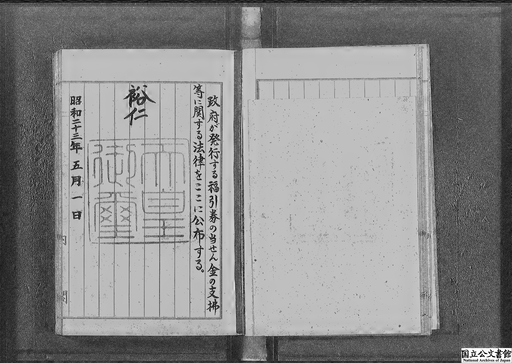 政府が発行する福引券の当せん金の支拂
等に関する法律をここに公布する。
裕仁
天皇御璽
昭和二十三年五月一日
国立公文書館
National Archives of Japan